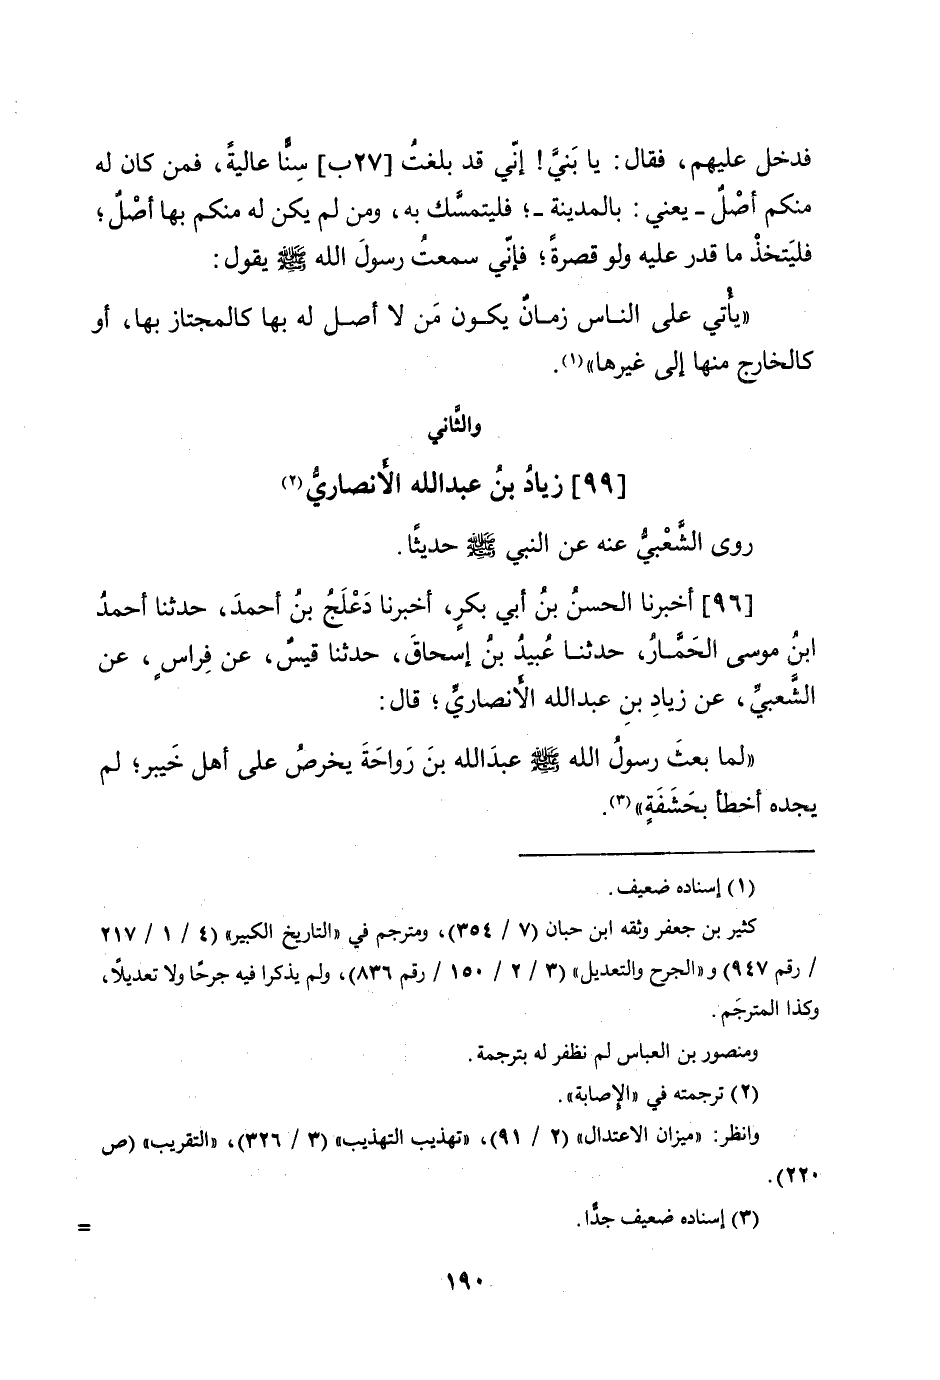 فدخل عليهم، فقال: يا بَنيَّ! إنّي قد بلغتُ [٢٧ب] سِنًّا عاليةً، فمن كان له
منكم أصْلٌ ـ يعني: بالمدينة ـ؛ فليتمسَّك به، ومن لم يكن له منكم بها أصْلٌ؛
فليَتخذْ ما قدر عليه ولو قصرةً؛ فإنّي سمعتُ رسولَ الله ﷺ يقول:
«يأتي على الناس زمانٌ يكون مَن لا أصل له بها كالمجتاز بها، أو
كالخارج منها إلى غيرها»(١).
والثَّاني
[٩٩] زيادُ بنُ عبدالله الأنصاريُّ(٢)
روى الشَّعْبيُّ عنه عن النبي ﷺ حديثًا.
[٩٦] أخبرنا الحسنُ بنُ أبي بكرٍ، أخبرنا دَعْلَجُ بنُ أحمدَ، حدثنا أحمدُ
ابنُ موسى الحَمَّارُ، حدثنا عُبيدُ بنُ إسحاقَ، حدثنا قيسٌ، عن فِراسٍ، عن
الشَّعبيِّ، عن زيادِ بنِ عبدالله الأنصاريِّ؛ قال:
«لما بعثَ رسولُ الله ﷺ عبدَالله بنَ رَواحَةَ يخرصُ على أهل خَيبر؛ لم
يجده أخطأ بحَشَفَةٍ»(٣).
(١) إسناده ضعيف.
كثير بن جعفر وثقه ابن حبان (٧ / ٣٥٤)، ومترجم في «التاريخ الكبير» (٤ / ١ / ٢١٧
/ رقم ٩٤٧) و«الجرح والتعديل» (٣ / ٢ / ١٥٠ / رقم ٨٣٦)، ولم يذكرا فيه جرحًا ولا تعديلًا،
وكذا المترجَم.
ومنصور بن العباس لم نظفر له بترجمة.
(٢) ترجمته في «الإصابة».
وانظر: «ميزان الاعتدال» (٢ / ٩١)، «تهذيب التهذيب» (٣ / ٣٢٦)، «التقريب» (ص
٢٢٠).
(٣) إسناده ضعيف جدًّا.
=
١٩٠